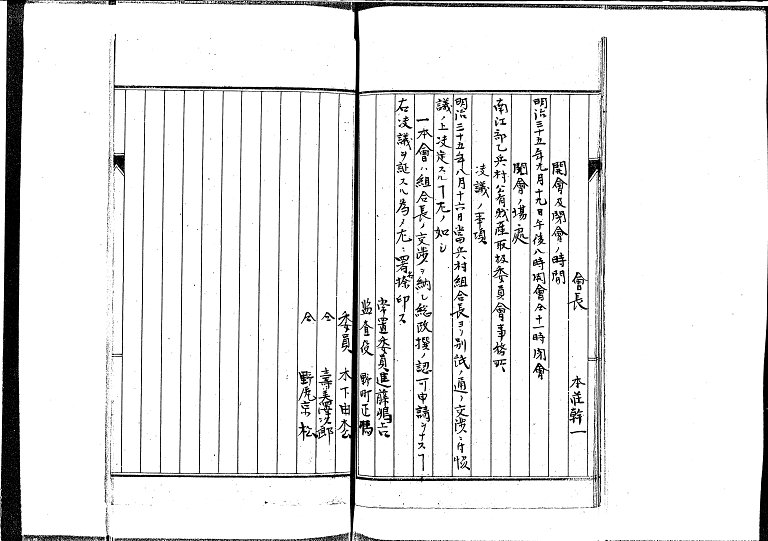 會長 本莊幹一
開會及閉會ノ時間
明治三十五年九月十九日午後八時開會仝十一時閉會
開會ノ場處
南江部乙兵村公有財產取扱委員會事務所
决議ノ事項
明治三十五年八月十六日當兵村組合長ヨリ別紙ノ通リ交渉ニ付協
議ノ上决定スルヿ左ノ如シ
一本會ハ組合長ノ交渉ヲ納レ総政撰ノ認可申請ヲナスヿ
右决議ヲ証スル為メ左ニ署名捺印ス
常置委員 進藤
監査役 野町正
委員 木下由
仝 壽美澤次郎
仝 野虎京松